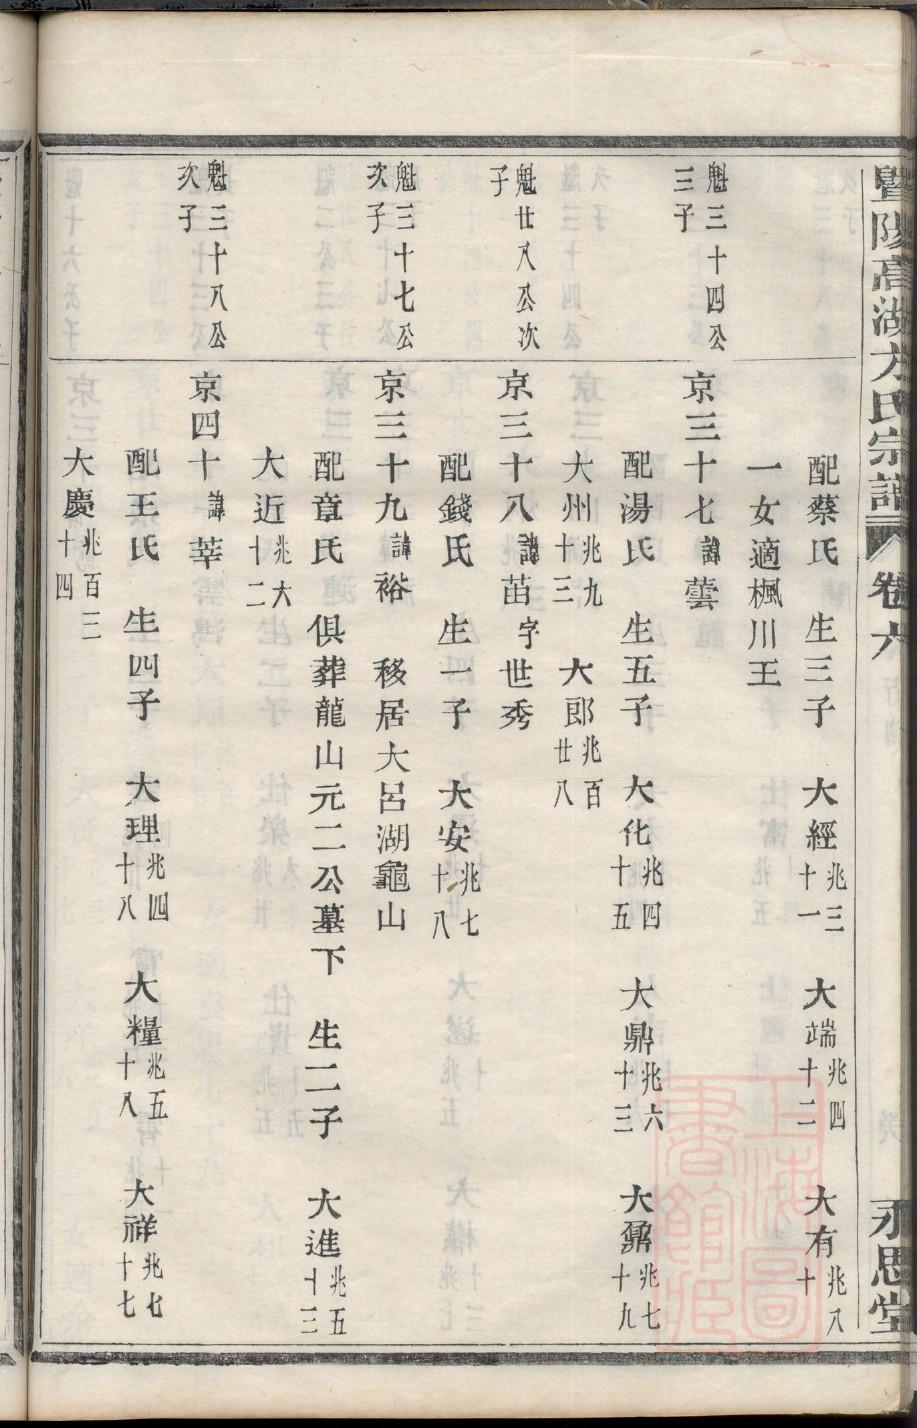 暨陽高湖方氏宗譜 卷六 永思堂
配蔡氏 生三子 大經兆三十一 大端兆四十二 大有兆八十
一女適楓川王
魁三十四公三子 京三十七諱蕓
配湯氏 生五子 大化兆四十五 大鼎兆六十三 大鼐兆七十九
大州兆九十三 大郎兆百廿八
魁廿八公次子 京三十八諱苗字世秀
配錢氏 生一子 大安兆七十八
魁三十七公次子 京三十九諱裕 移居大呂湖龜山
配章氏 俱葬龍山元二公墓下 生二子 大進兆五十三
大近兆六十二
魁三十八公次子 京四十諱莘
配王氏 生四子 大理兆四十八 大糧兆五十八 大祥兆七十七
大慶兆百二十四